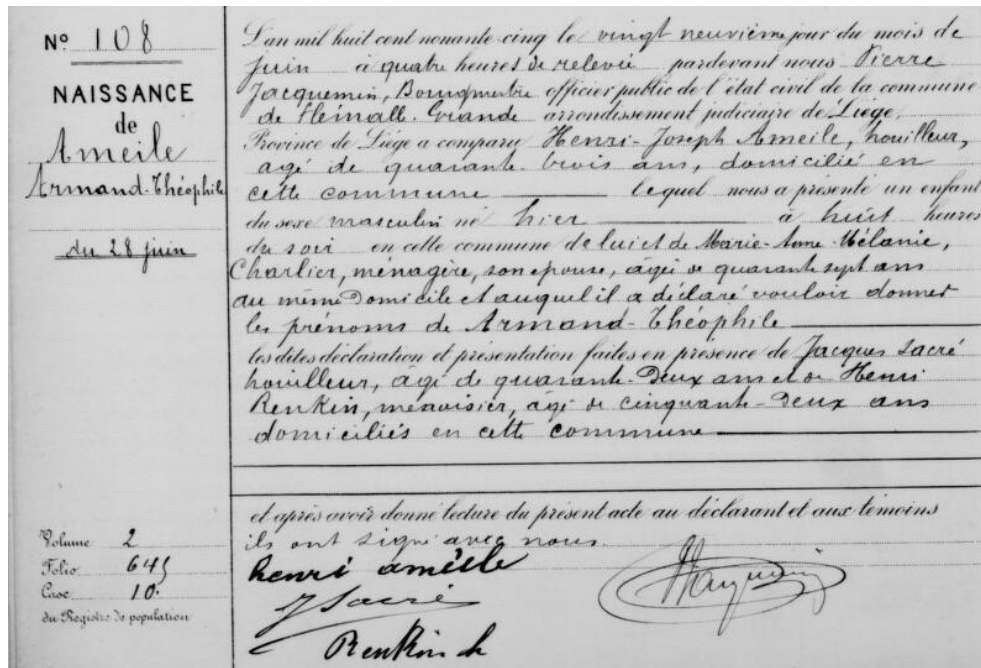 N° 108
NAISSANCE
de
Ameile
Armand-Théophile
du 28 juin
Volume 2
Folio 645
Case 10.
du Registre de population
L'an mil huit cent nonante-cinq le vingt neuvième jour du mois de
juin à quatre heures de relevée pardevant nous Pierre
Jacquemin, Bourgmestre officier public de l'état civil de la commune
de Flémalle-Grande arrondissement judiciaire de Liège,
Province de Liège a comparu Henri-Joseph Ameile, houilleur,
agé de quarante-trois ans, domicilié en
cette commune lequel nous a présenté un enfant
du sexe masculin né hier à huit heures
du soir en cette commune de lui et de Marie-Anne-Mélanie,
Charlier, ménagère, son épouse, âgée de quarante sept ans
au même domicile et auquel il a déclaré vouloir donner
les prénoms de Armand-Théophile
les dites déclaration et présentation faites en présence de Jacques Sacré
houilleur, âgé de quarante-deux ans et de Henri
Renkin, menuisier, âgé de cinquante-deux ans
domiciliés en cette commune
et après avoir donné lecture du présent acte au déclarant et aux témoins
ils ont signé avec nous.
henri amèile
J Sacré
Renkin h
PJacquemin